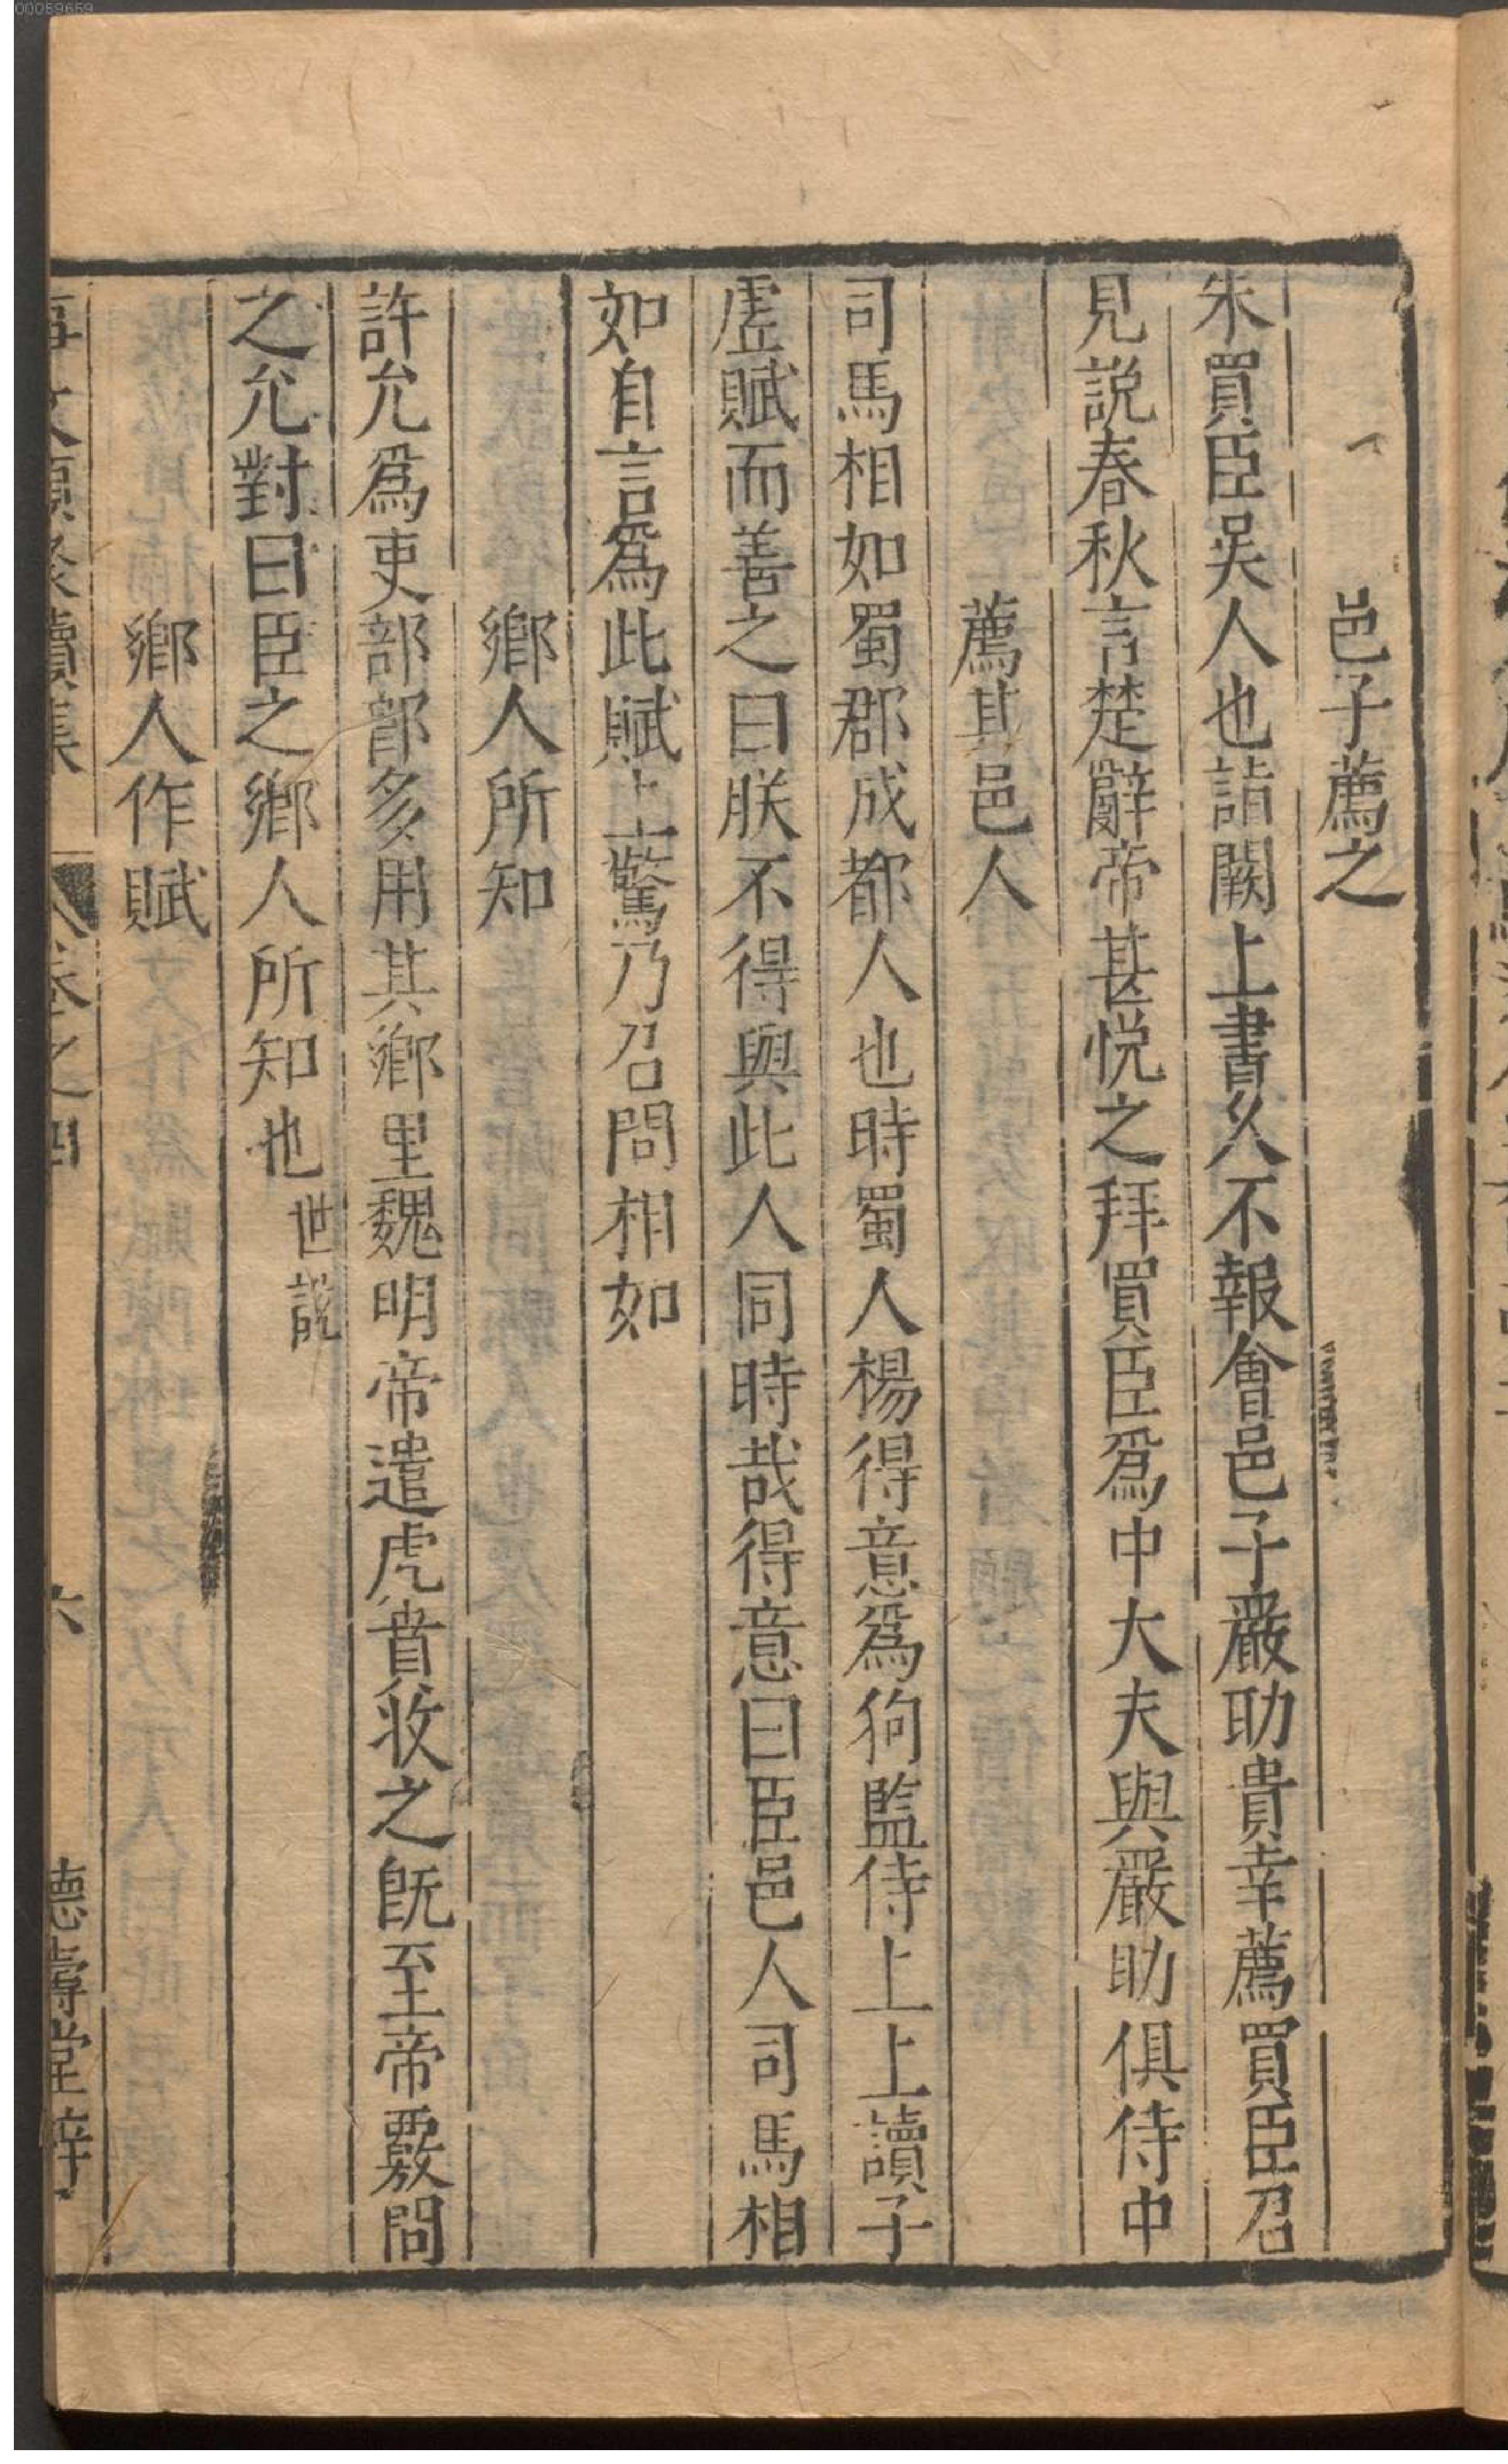 00089659
邑子薦之
朱買臣吴人也詣闕上書久不報會邑子嚴助貴幸薦買臣召
見説春秋言楚辭帝甚悦之拜買臣爲中大夫與嚴助俱侍中
薦其邑人
司馬相如蜀郡成都人也時蜀人楊得意爲狗監侍上上讀子
虚賦而善之曰朕不得與此人同時哉得意曰臣邑人司馬相
如自言爲此賦上驚乃召問相如
鄉人所知
許允爲吏部郎多用其鄉里魏明帝遣虎賁收之旣至帝覈問
之允對曰臣之鄉人所知也世説
鄉人作賦
事文類聚續集 卷之四 六 德壽堂梓